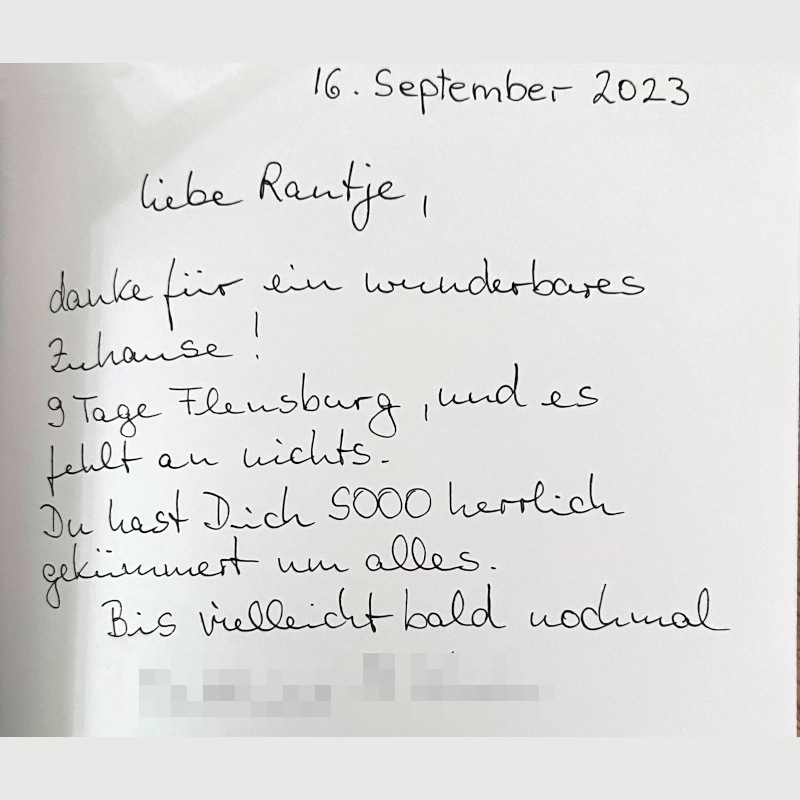 16. September 2023
liebe Rantje,
danke für ein wunderbares
Zuhause!
9 Tage Flensburg, und es
fehlt an nichts.
Du hast Dich SOOO herrlich
gekümmert um alles.
Bis vielleicht bald nochmal